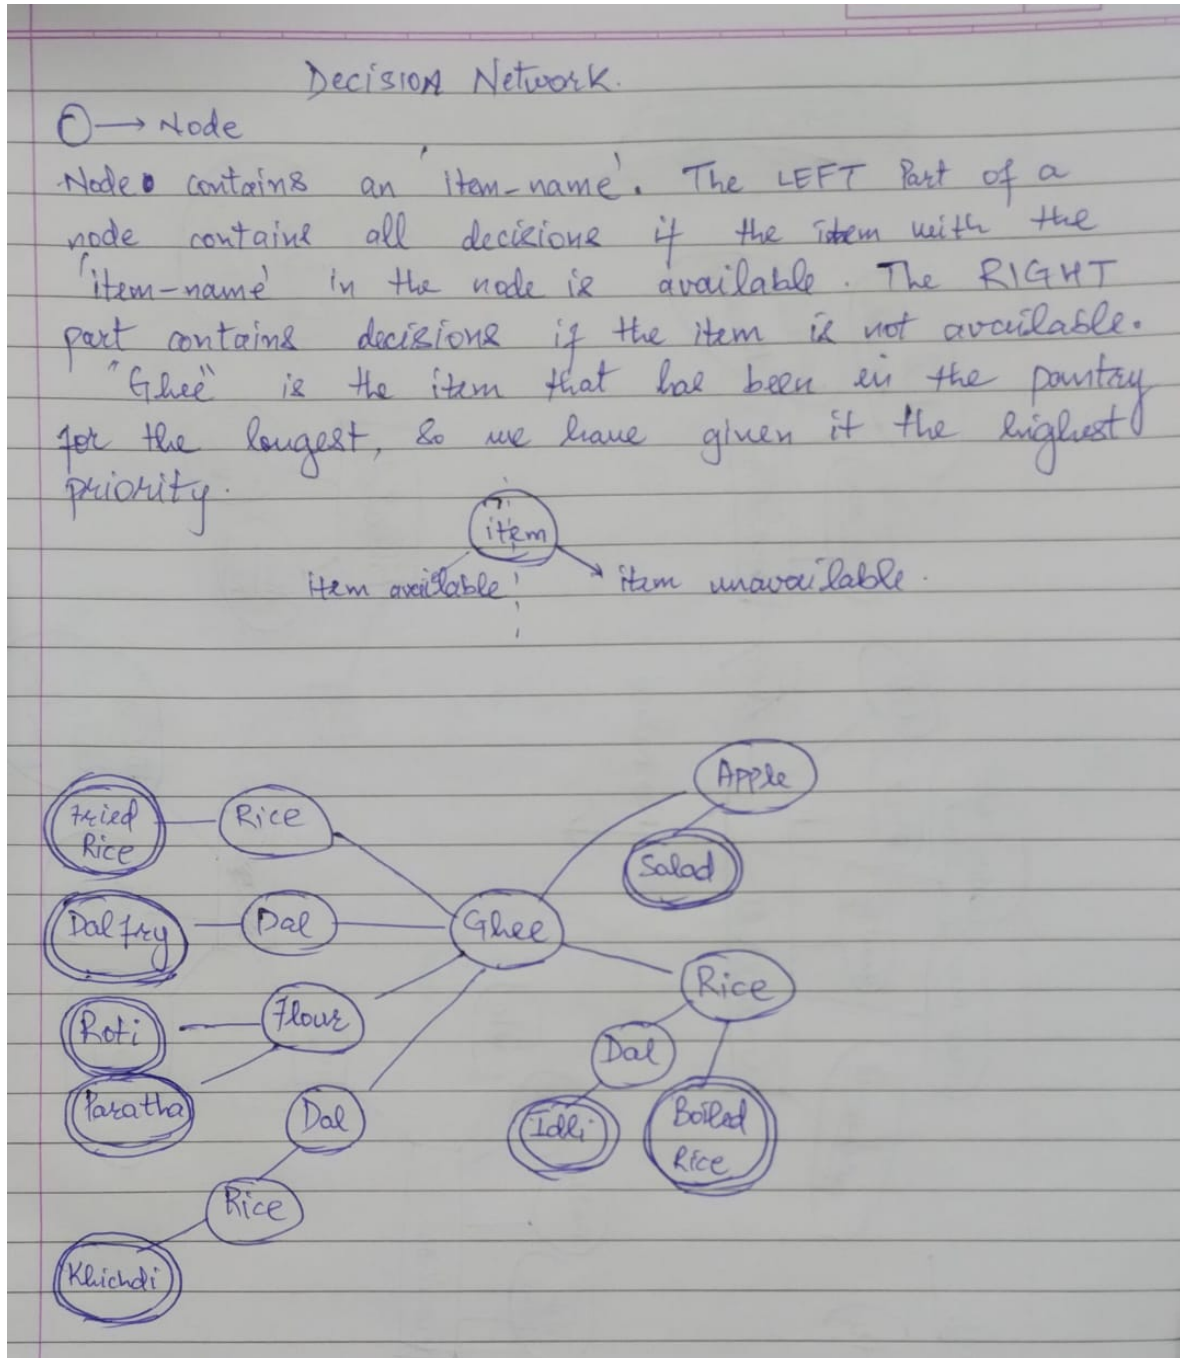 Decision Network.
→ Node
Node contains an 'item-name'. The LEFT Part of a
node contains all decisions if the item with the
'item-name' in the node is available. The RIGHT
part contains decisions if the item is not available.
"Ghee" is the item that has been in the pantry
for the longest, so we have given it the highest
priority.
item
item available
item unavailable.
Apple
Fried
Rice
Rice
Salad
Dal fry
Dal
Ghee
Rice
Roti
Flour
Dal
Paratha
Dal
Idli
Boiled
Rice
Rice
Khichdi